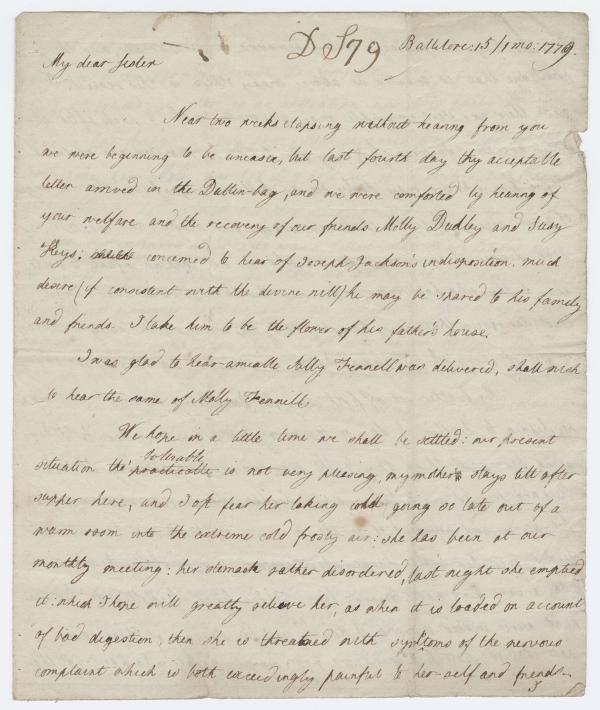 D S79
Ballitore: 15/1 mo: 1779.
My dear Sister
Near two weeks elapsing without hearing from you
we were beginning to be uneasie, but last fourth day thy acceptable
letter arrived in the Dublin-bag, and we were comforted by hearing of
your welfare and the recovery of our friends Molly Dudley and Susy
Heys: concerned to hear of Joseph Jackson's indisposition. much
desire (if consistent with the divine will) he may be spared to his family
and friends. I take him to be the flower of his father's house.
I was glad to hear amiable Sally Fennell was delivered, shall wish
to hear the same of Molly Fennell.
We hope in a little time we shall be settled: our present
tolerable
situation tho' practicable is not very pleasing, my mother stays till after
supper here, and I oft fear her taking cold going so late out of a
warm room into the extreme cold frosty air: she has been at our
monthly meeting: her stomack rather disordered, last night she emptied
it: which I hope will greatly relieve her, as when it is loaded on account
of bad digestion, then she is threatned with symptoms of the nervous
complaint which is both exceedingly painful to her-self and friends.